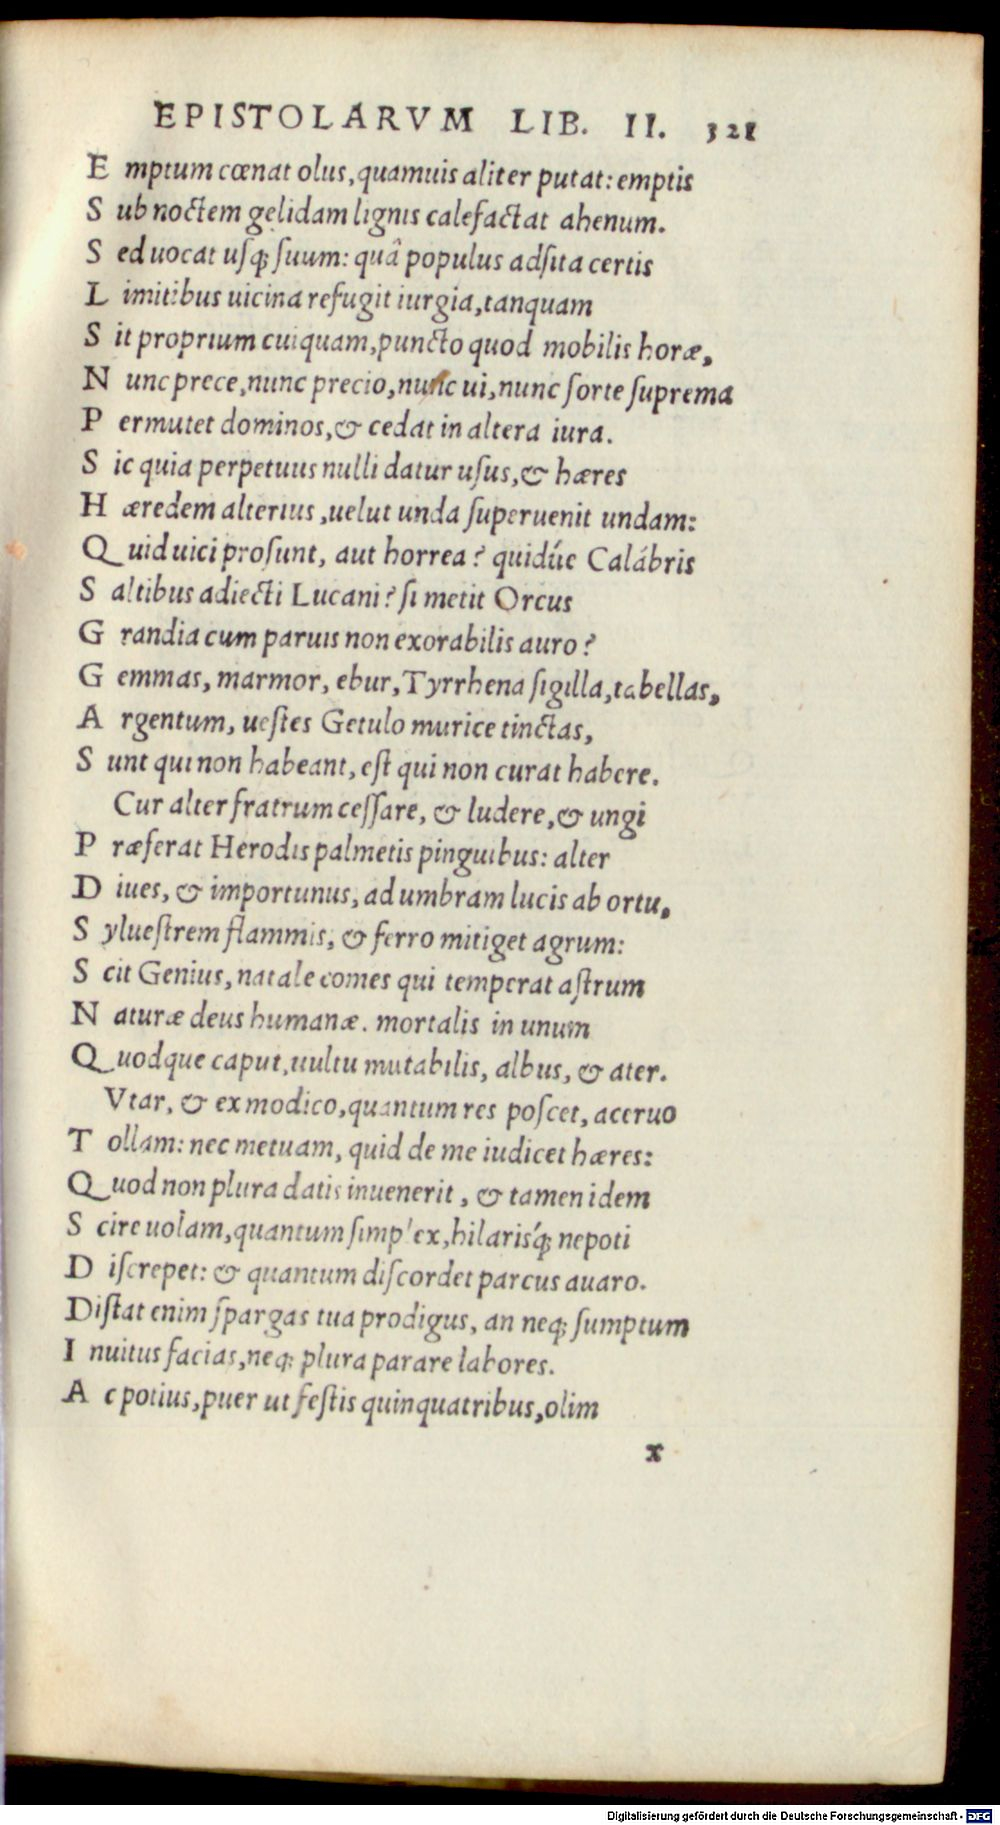 EPISTOLARVM LIB. II. 321
E mptum cœnat olus, quamuis aliter putat: emptis
S ub noctem gelidam lignis calefactat ahenum.
S ed uocat usq; suum: quâ populus adsita certis
L imitibus uicina refugit iurgia, tanquam
S it proprium cuiquam, puncto quod mobilis horæ,
N unc prece, nunc precio, nunc ui, nunc sorte suprema
P ermutet dominos, & cedat in altera iura.
S ic quia perpetuus nulli datur usus, & hæres
H æredem alterius, uelut unda superuenit undam:
Q uid uici prosunt, aut horrea? quidúe Calábris
S altibus adiecti Lucani? si metit Orcus
G randia cum paruis non exorabilis auro?
G emmas, marmor, ebur, Tyrrhena sigilla, tabellas,
A rgentum, uestes Getulo murice tinctas,
S unt qui non habeant, est qui non curat habere.
Cur alter fratrum cessare, & ludere, & ungi
P ræferat Herodis palmetis pinguibus: alter
D iues, & importunus, ad umbram lucis ab ortu,
S yluestrem flammis, & ferro mitiget agrum:
S cit Genius, natale comes qui temperat astrum
N aturæ deus humanæ. mortalis in unum
Q uodque caput, uultu mutabilis, albus, & ater.
Vtar, & ex modico, quantum res poscet, aceruo
T ollam: nec metuam, quid de me iudicet hæres:
Q uod non plura datis inuenerit, & tamen idem
S cire uolam, quantum simplex, hilarisq́; nepoti
D iscrepet: & quantum discordet parcus auaro.
Distat enim spargas tua prodigus, an neq; sumptum
I nuitus facias, neq; plura parare labores.
A c potius, puer ut festis quinquatribus, olim
x
Digitalisierung gefördert durch die Deutsche Forschungsgemeinschaft - DFG